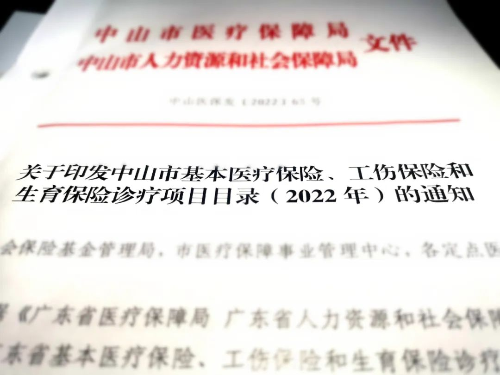 中山市医疗保障局
中山市人力资源和社会保障局 文件
中山医保发〔2022〕65号
关于印发中山市基本医疗保险、工伤保险和
生育保险诊疗项目目录（2022年）的通知
会保险基金管理局，市医疗保障事业管理中心，各定点医
《广东省医疗保障局 广东省人力资源和社会保障
东省基本医疗保险、工伤保险和生育保险诊疗